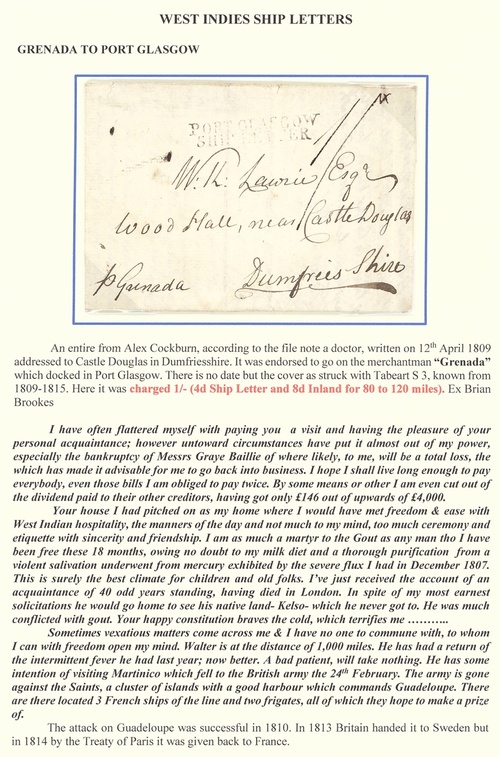 WEST INDIES SHIP LETTERS
GRENADA TO PORT GLASGOW
PORT GLASGOW
SHIP LETTER
1/
W. K: Lawrie Esqr
Wood Hall, near Castle Douglas
Dumfries Shire
p Grenada
An entire from Alex Cockburn, according to the file note a doctor, written on 12th April 1809
addressed to Castle Douglas in Dumfriesshire. It was endorsed to go on the merchantman “Grenada”
which docked in Port Glasgow. There is no date but the cover as struck with Tabeart S 3, known from
1809-1815. Here it was charged 1/- (4d Ship Letter and 8d Inland for 80 to 120 miles). Ex Brian
Brookes
I have often flattered myself with paying you a visit and having the pleasure of your
personal acquaintance; however untoward circumstances have put it almost out of my power,
especially the bankruptcy of Messrs Graye Baillie of where likely, to me, will be a total loss, the
which has made it advisable for me to go back into business. I hope I shall live long enough to pay
everybody, even those bills I am obliged to pay twice. By some means or other I am even cut out of
the dividend paid to their other creditors, having got only £146 out of upwards of £4,000.
Your house I had pitched on as my home where I would have met freedom & ease with
West Indian hospitality, the manners of the day and not much to my mind, too much ceremony and
etiquette with sincerity and friendship. I am as much a martyr to the Gout as any man tho I have
been free these 18 months, owing no doubt to my milk diet and a thorough purification from a
violent salivation underwent from mercury exhibited by the severe flux I had in December 1807.
This is surely the best climate for children and old folks. I’ve just received the account of an
acquaintance of 40 odd years standing, having died in London. In spite of my most earnest
solicitations he would go home to see his native land- Kelso- which he never got to. He was much
conflicted with gout. Your happy constitution braves the cold, which terrifies me ………..
Sometimes vexatious matters come across me & I have no one to commune with, to whom
I can with freedom open my mind. Walter is at the distance of 1,000 miles. He has had a return of
the intermittent fever he had last year; now better. A bad patient, will take nothing. He has some
intention of visiting Martinico which fell to the British army the 24th February. The army is gone
against the Saints, a cluster of islands with a good harbour which commands Guadeloupe. There
are there located 3 French ships of the line and two frigates, all of which they hope to make a prize
of.
The attack on Guadeloupe was successful in 1810. In 1813 Britain handed it to Sweden but
in 1814 by the Treaty of Paris it was given back to France.